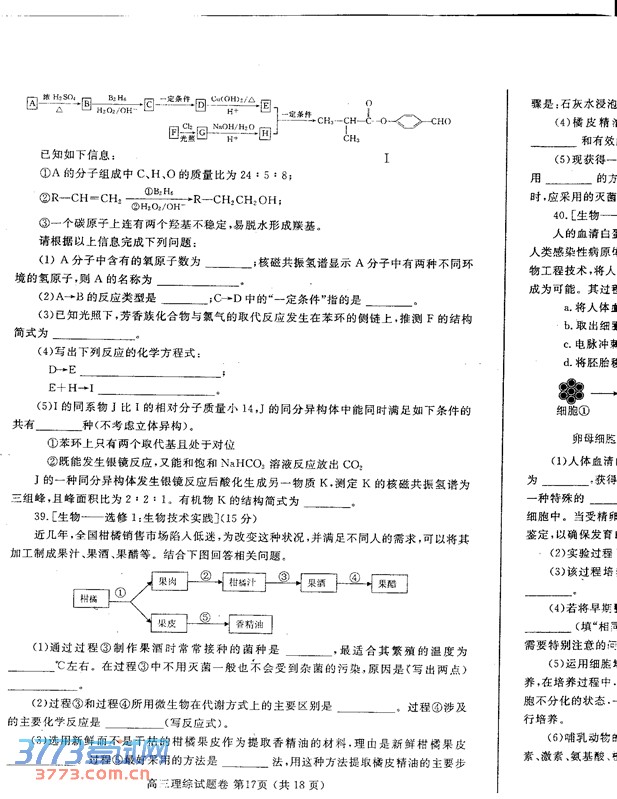 A 浓H₂SO₄ △ B B₂H₆ H₂O₂/OH⁻ C 一定条件 D Cu(OH)₂/△ H⁺ E
F Cl₂ 光照 G NaOH/H₂O H⁺ H
一定条件 CH₃—CH—C—O— —CHO
O
CH₃
I
已知如下信息:
①A的分子组成中C、H、O的质量比为24:5:8;
②R—CH=CH₂ ①B₂H₆ ②H₂O₂/OH⁻ R—CH₂CH₂OH;
③一个碳原子上连有两个羟基不稳定,易脱水形成羰基。
请根据以上信息完成下列问题:
(1) A分子中含有的氧原子数为______;核磁共振氢谱显示A分子中有两种不同环
境的氢原子,则A的名称为____________。
(2)A→B的反应类型是______;C→D中的“一定条件”指的是______。
(3)已知光照下,芳香族化合物与氯气的取代反应发生在苯环的侧链上,推测F的结构
简式为____________。
(4)写出下列反应的化学方程式:
D→E____________________;
E+H→I____________________。
(5)I的同系物J比I的相对分子质量小14,J的同分异构体中能同时满足如下条件的
共有______种(不考虑立体异构)。
①苯环上只有两个取代基且处于对位
②既能发生银镜反应,又能和饱和NaHCO₃溶液反应放出CO₂
J的一种同分异构体发生银镜反应后酸化生成另一物质K,测定K的核磁共振氢谱为
三组峰,且峰面积比为2:2:1。有机物K的结构简式为____________。
39.[生物——选修1:生物技术实践](15分)
近几年,全国柑橘销售市场陷入低迷,为改变这种状况,并满足不同人的需求,可以将其
加工制成果汁、果酒、果醋等。结合下图回答相关问题。
柑橘 ① 果肉 ② 柑橘汁 ③ 果酒 ④ 果醋
果皮 ⑤ 香精油
(1)通过过程③制作果酒时常常接种的菌种是______,最适合其繁殖的温度为
______℃左右。在过程③中不用灭菌一般也不会受到杂菌的污染,原因是(写出两点)
____________。
(2)过程③和过程④所用微生物在代谢方式上的主要区别是________。过程④涉及
的主要化学反应是________(写反应式)。
(3)选用新鲜而不是干枯的柑橘果皮作为提取香精油的材料,理由是新鲜柑橘果皮
______。过程⑤最好采用的方法是______法,用这种方法提取橘皮精油的主要步
高三理综试题卷 第17页(共18页)
3773考试网
3773.com.cn
骤是:石灰水浸泡
(4)橘皮精油
______和有效
(5)现获得一
用______的方
时,应采用的灭菌
40.[生物——
人的血清白蛋
人类感染性病原体
物工程技术,将人
成为可能。其过程
a.将人体血
b.取出细
c.电脉冲刺
d.将胚胎移
细胞①
卵母细胞
(1)人体血清
为______,获得
一种特殊的______
细胞中。当受精卵
鉴定,以确保发育
(2)实验过程
(3)该过程培
______。
(4)若将早期
______(填“相同
需要特别注意的问
(5)运用细胞
养,在培养过程中,
胞不分化的状态·
行培养。
(6)哺乳动物的
素、激素、氨基酸、